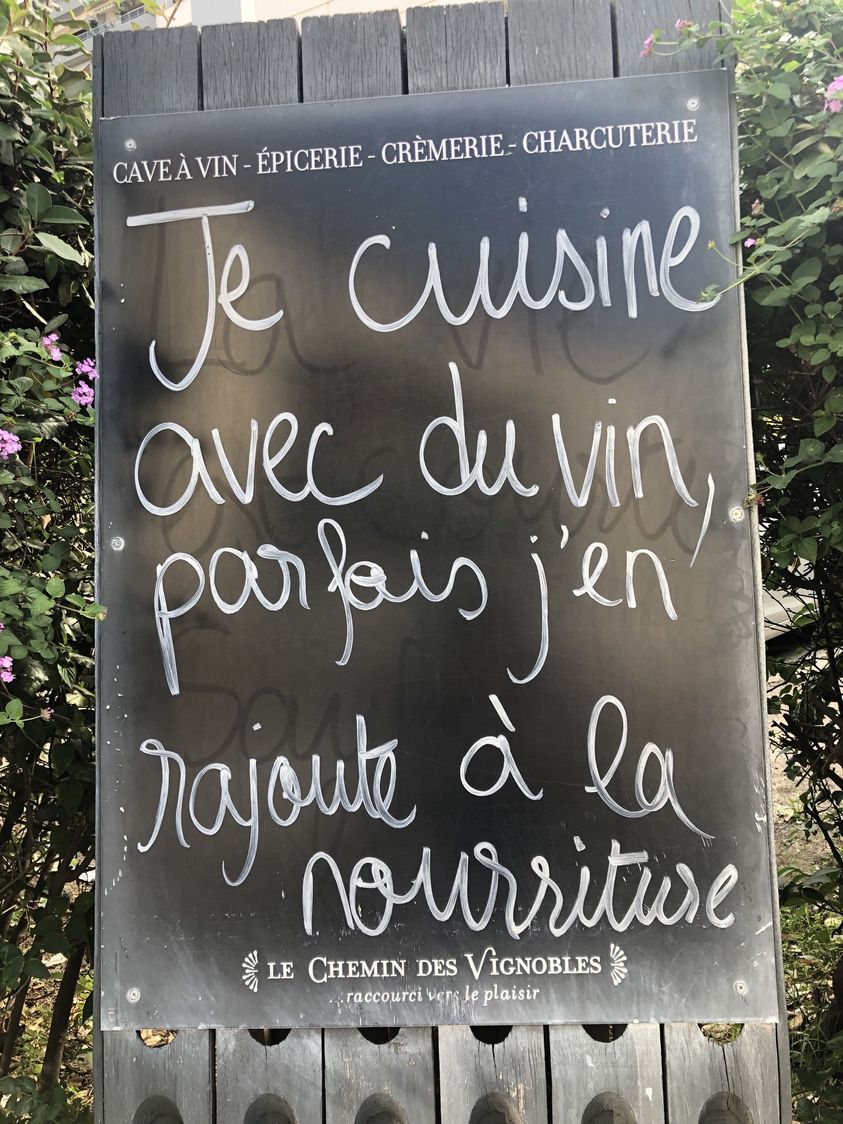 CAVE À VIN - ÉPICERIE - CRÈMERIE - CHARCUTERIE
Je cuisine
avec du vin,
parfois j'en
rajoute à la
nourriture
LE CHEMIN DES VIGNOBLES
...raccourci vers le plaisir